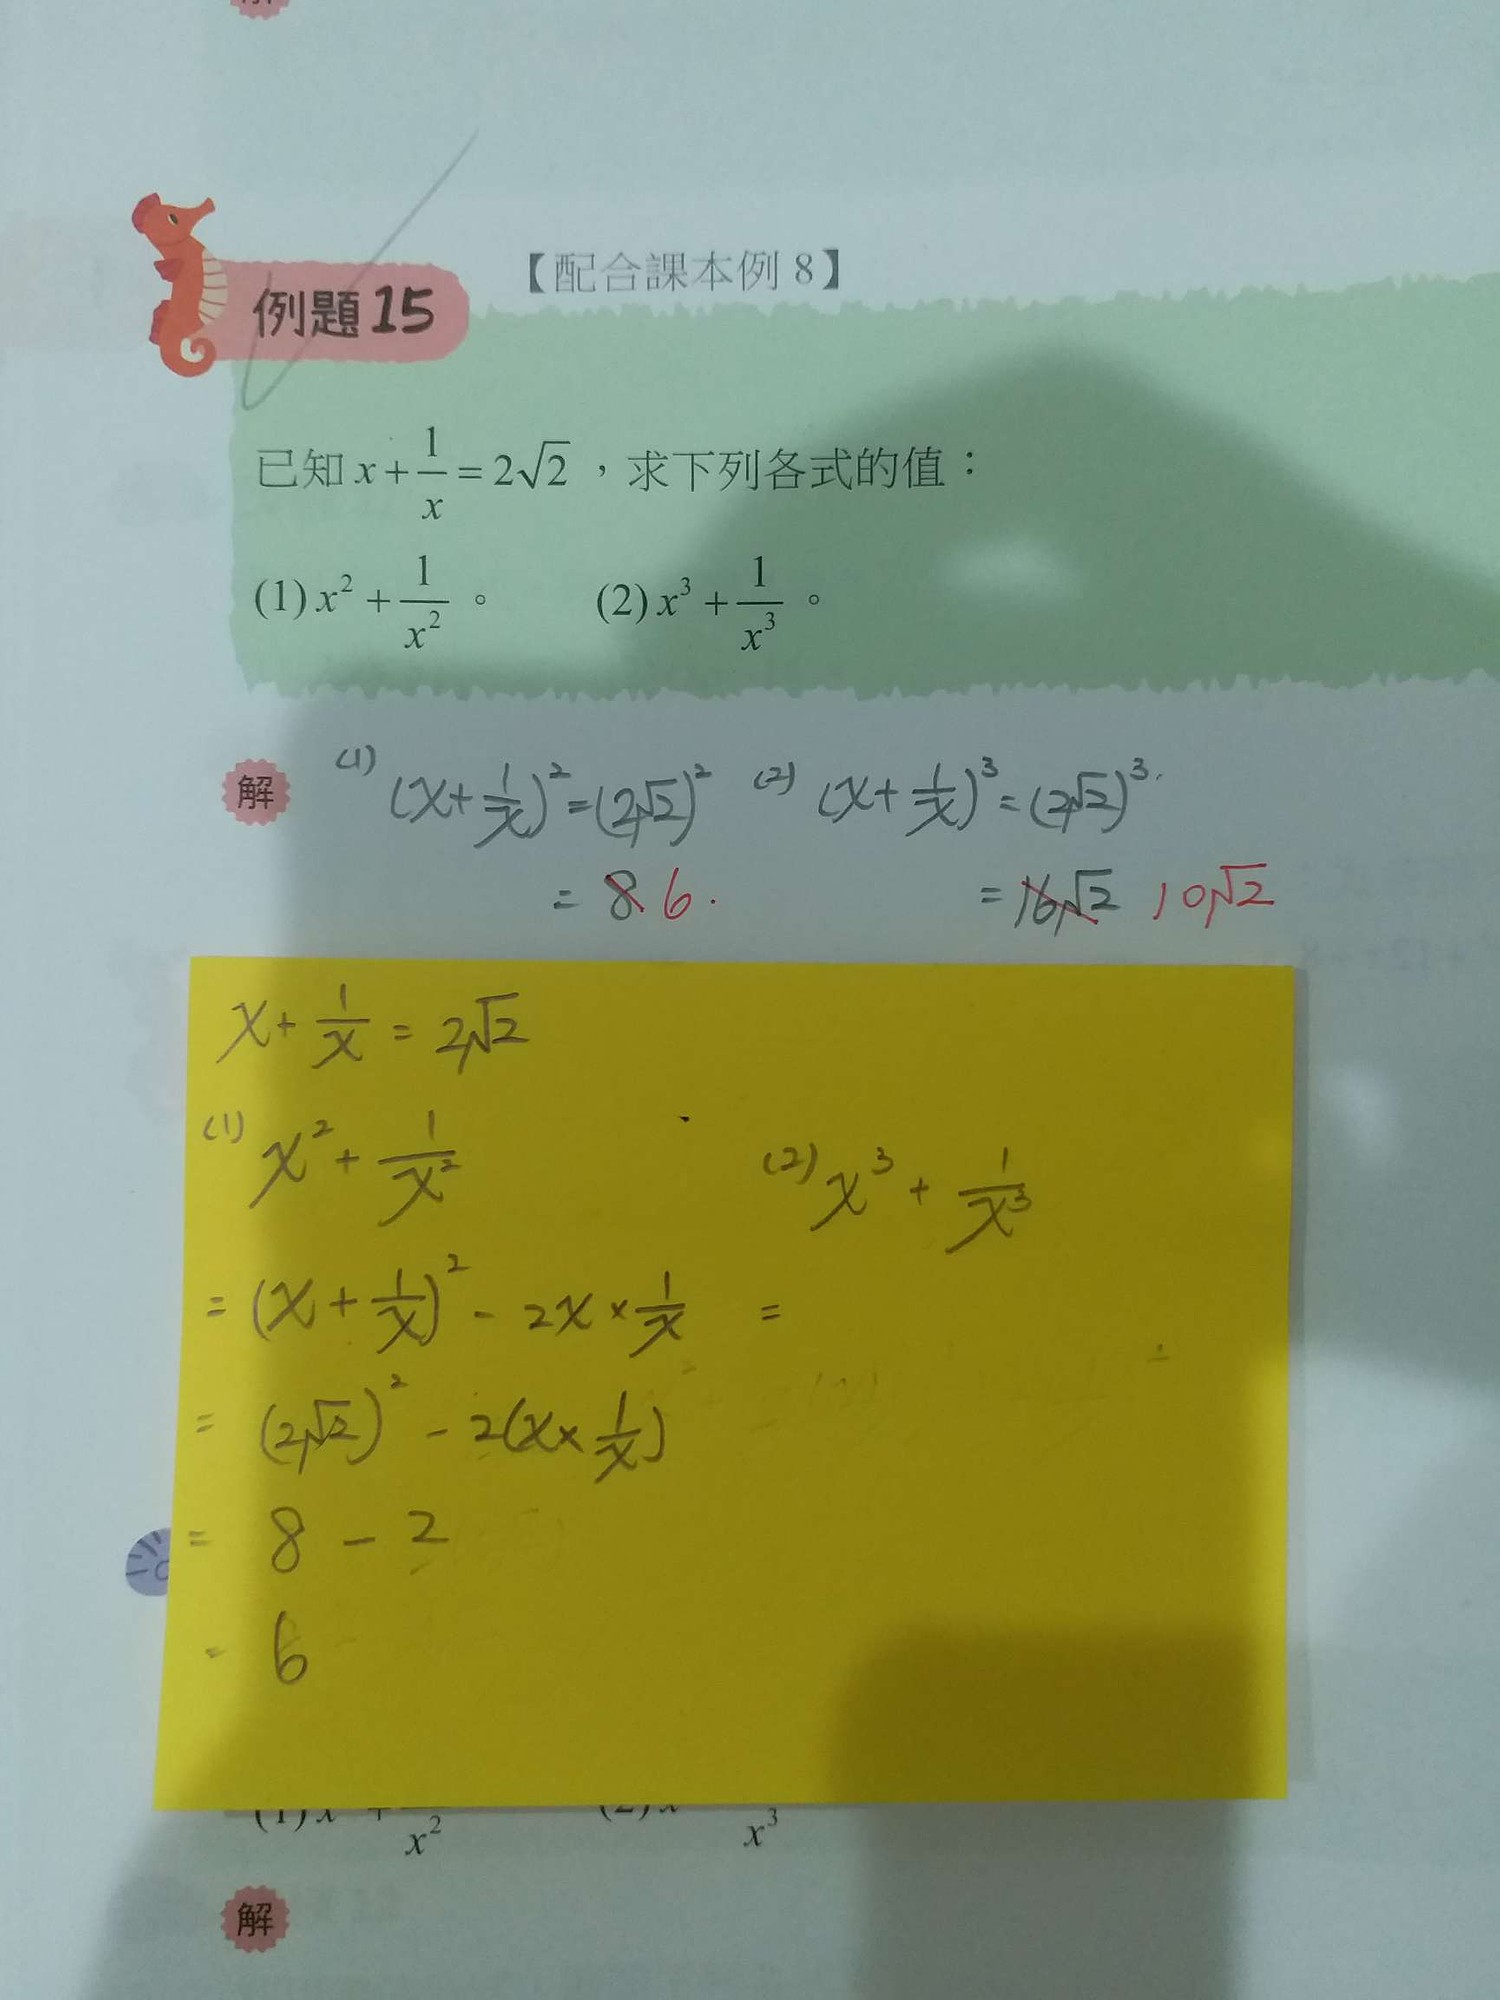 【配合課本例 8】
例題15
已知 x + 1/x = 2√2 ，求下列各式的值：
(1) x² + 1/x² 。 (2) x³ + 1/x³ 。
解
(1) (x + 1/x)² = (2√2)² (2) (x + 1/x)³ = (2√2)³
= 8 6. = 16√2 10√2
x + 1/x = 2√2
(1) x² + 1/x² (2) x³ + 1/x³
= (x + 1/x)² - 2x × 1/x =
= (2√2)² - 2(x × 1/x)
= 8 - 2
= 6
(1) x + x² (2) x x³
解